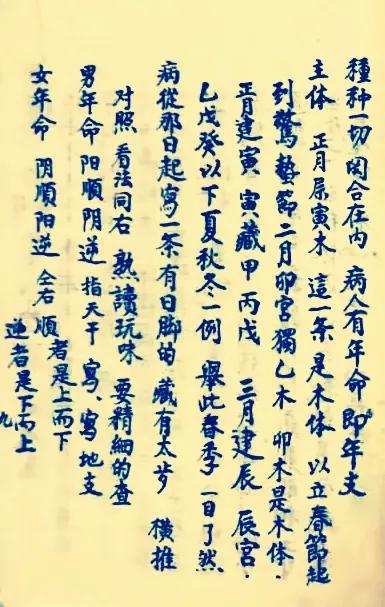 種种一切因合在内 病人有年命即年支
主体 正月属寅木 這一条是木体 以立春節起
到驚蟄節二月卯宮獨乙木 卯木是木体·
正月建寅 寅藏甲丙戊 三月建辰 辰宮·
乙戊癸以下夏秋冬一例 舉此春季一目了然
病從那日起寫一条有日脚的 藏有太歩 横推
对照 看法同右 熟讀玩味 要精细的查
男年命阳順阴逆 指天干 寫、寫地支
女年命 阴順阳逆 仝右 順者是上而下
逆者是下而上
九